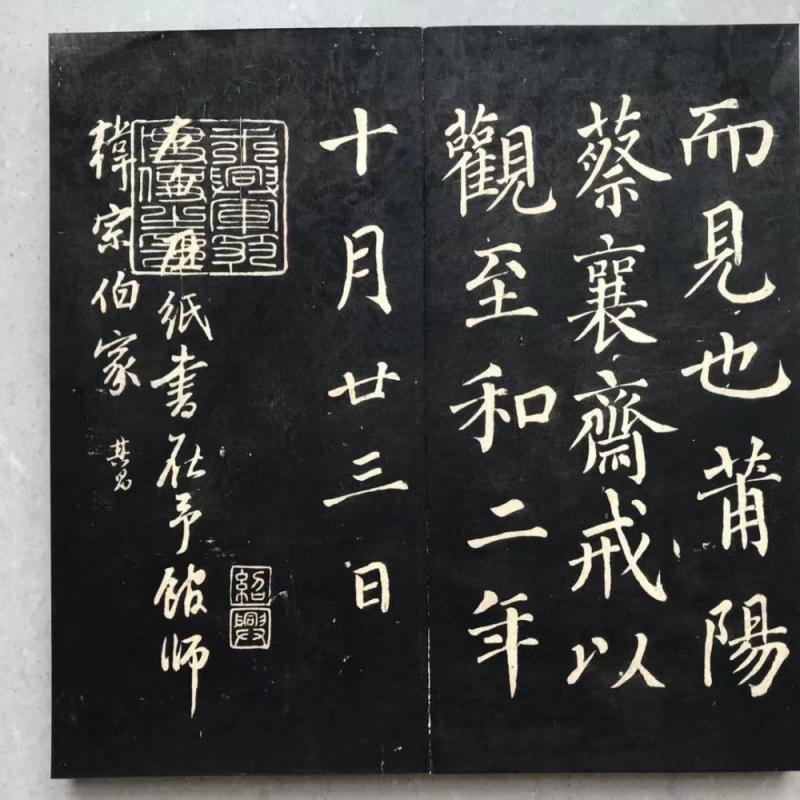 而見也莆陽
蔡襄齋戒以
觀至和二年
十月廿三日
紹興
右紙書在予館師
韓宗伯家 其昌